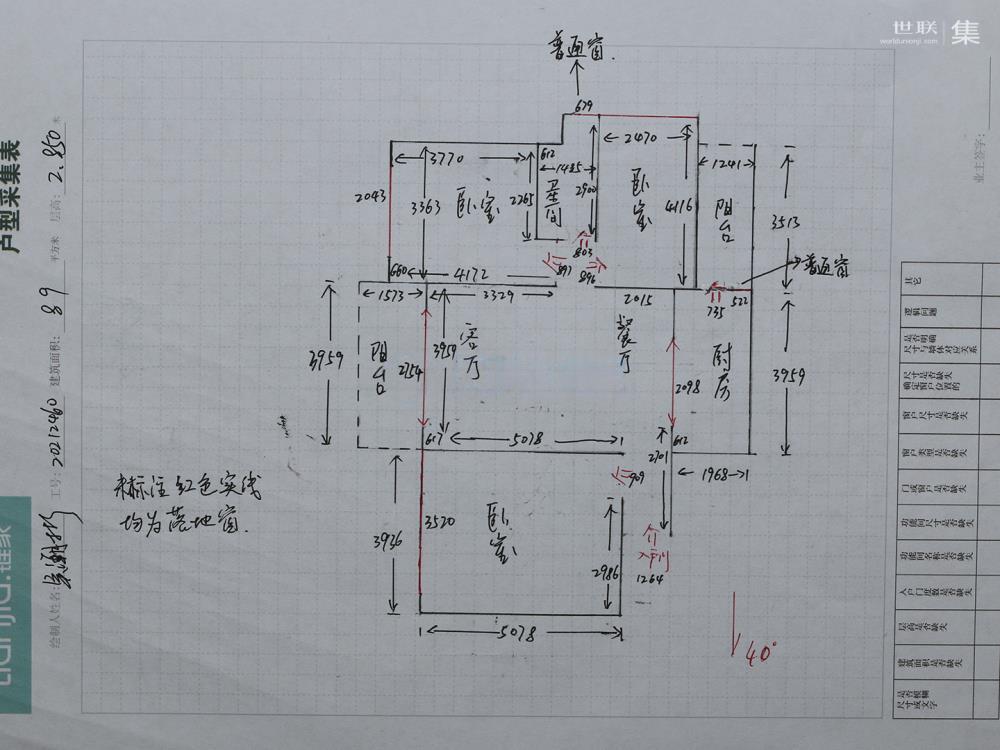 世联 集
worldunionji.com
普通窗.
679
2470
3770
612
1485
1241
2043
3363
卧室
2265
2900
卧室
4116
阳台
3513
803
660
4172
897
896
普通窗
1573
3329
2015
735
522
3959
阳台
2754
3959
客厅
餐厅
2098
厨房
3959
617
5078
612
2701
1968
909
3936
3520
卧室
2986
入户门
1264
5078
40°
未标注红色实线
均为落地窗.
户型采集表
绘制人姓名:
工号: 20212460 建筑面积: 89 平方米 层高: 2.850 米
lianjia.链家
业主签字:
其它
逻辑问题
是否明确
尺寸与墙体对应关系
尺寸是否缺失
确定窗户位置的
窗户尺寸是否缺失
窗户类型是否缺失
门或窗户是否缺失
功能间尺寸是否缺失
功能间名称是否缺失
入户门度数是否缺失
层高是否缺失
建筑面积是否缺失
是否模糊
尺寸或文字